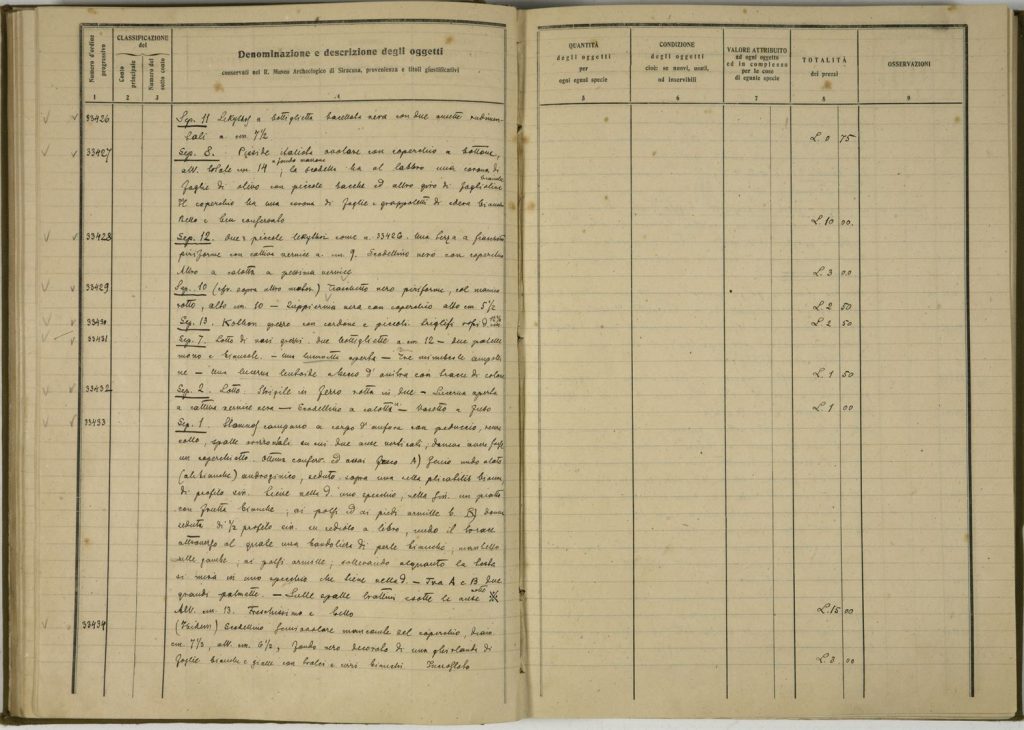 Numero d'ordine progressivo
CLASSIFICAZIONE del
Conto principale
Numero del sotto conto
Denominazione e descrizione degli oggetti
conservati nel R. Museo Archeologico di Siracusa, provenienza e titoli giustificativi
1 2 3 4
33426 Sep. 11 Lekythos a bottiglietta baccellata nera con due ansette rudimen-
tali a. cm. 7 1/2
33427 Sep. 8. Pisside italiota ovolare con coperchio a bottone,
alt. totale cm. 14 a fondo marrone; la scodella ha al labbro una corona di
foglie di olivo con piccole bacche ed altro giro di foglioline bianche
Il coperchio ha una corona di foglie e grappoletti di edera bianchi
Bello e ben conservato
33428 Sep. 12. due piccole lekythoi come n. 33426. Una terza a
piriforme con cattiva vernice a. cm. 9. Scodellino nero con coperchio
Altro a calotta a pessima vernice
33429 Sep. 10 (cfr. sopra altro mater.) Fiaschetto nero piriforme, col manico
rotto, alto cm. 10 — Zuppierina nera con coperchio alto cm. 5 1/2
33430 Sep. 13. Kothon grezzo con cordone e piccoli
33431 Sep. 7. Lotto di vasi grezzi: due bottigliette a cm. 12 — due patelle
mono e biansate. — Una lucernetta aperta — Tre minuscole ampolli-
ne — Una lucerna lenticolare d'ambra con tracce di colore
33432 Sep. 2. Lotto. Strigile in ferro rotta in due — Lucerna aperta
a cattiva vernice nera — Scodellino a calotta — Vasetto a fuso
33433 Sep. 1. Stamnos campano a corpo d'anfora con peduccio, senza
collo, spalle orizzontali su cui due anse verticali; doveva avere forse
un coperchietto. Ottima conserv. ed assai fresco A) Genio nudo alato
(ali bianche) androginico, seduto sopra una sella plicabilis bianca
di profilo sin. tiene nella d. uno specchio, nella sin. un piatto
con frutta bianche; ai polsi ed ai piedi armille b. B) donna
seduta di 1/2 profilo sin. su sediola a libro, nudo il torace
attraverso al quale una bandoliera di perle bianche; mantello
sulle gambe, ai polsi armille; sollevando alquanto la testa
si mira in uno specchio che tiene nella d. — Tra A e B due
grandi palmette. — Sulle spalle trattini sotto le anse
Alt. cm. 13. Freschissimo e bello
33434 Scodellino semiovolare mancante del coperchio, diam.
cm. 7 1/2, alt. cm. 6 1/2, fondo nero decorato di una ghirlanda di
foglie bianche e gialle con tralci e cirri bianchi
QUANTITÀ degli oggetti per ogni egual specie
CONDIZIONE degli oggetti cioè: se nuovi, usati, od inservibili
VALORE ATTRIBUITO ad ogni oggetto ed in complesso per le cose di eguale specie
TOTALITÀ dei prezzi
OSSERVAZIONI
5 6 7 8 9
L. 0 75
L. 10 00.
L. 3 00
L. 2 50
L. 2 50
L. 1 50
L. 1 00
L. 15 00
L. 3 00